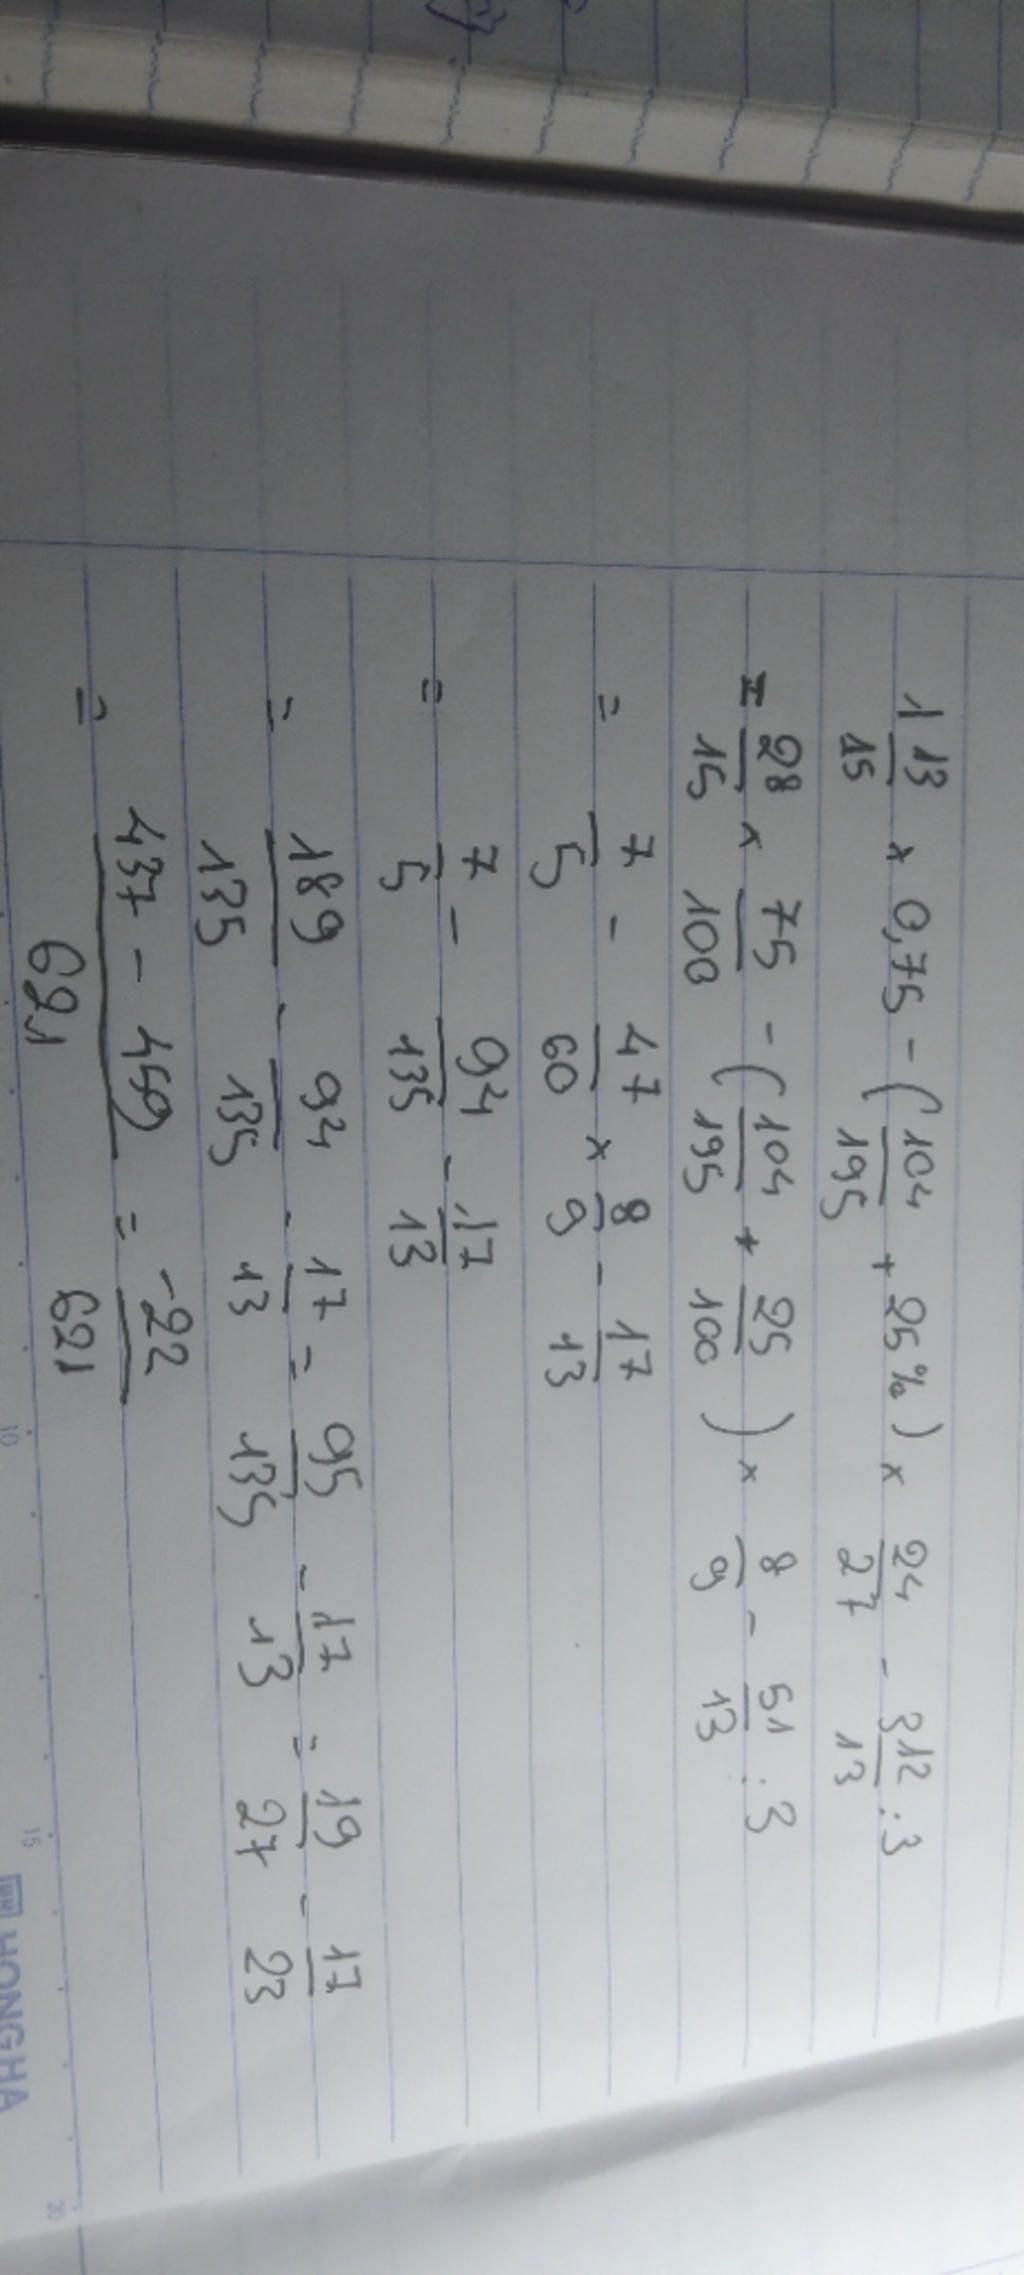 1 13/15 × 0,75 - ( 104/195 + 25% ) × 24/27 - 3 12/13 : 3
= 28/15 × 75/100 - ( 104/195 + 25/100 ) × 8/9 - 51/13 : 3
= 7/5 - 47/60 × 8/9 - 17/13
= 7/5 - 94/135 - 17/13
= 189/135 - 94/135 - 17/13 = 95/135 - 17/13 = 19/27 - 17/23
= 437 - 459/621 = -22/621
10 15 20
HONG HA